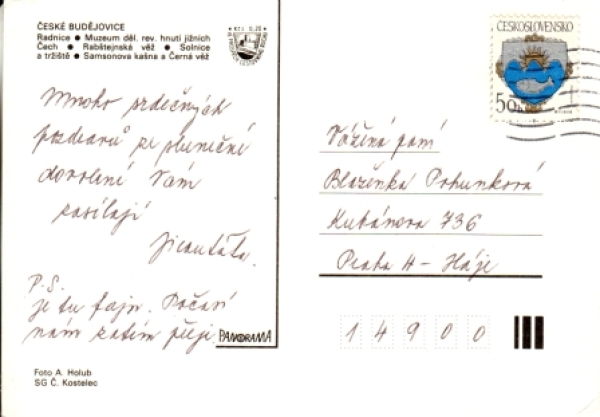 ČESKÉ BUDĚJOVICE
Radnice ● Muzeum děl. rev. hnutí jižních
Čech ● Rabštejnská věž ● Solnice
a tržiště ● Samsonova kašna a Černá věž
Kčs 0,20
ČESKOSLOVENSKO
50
Mnoho srdečných
pozdravů ze sluneční
dovolené Vám
zasílají
P.S.
je tu fajn. Počasí
nám zatím přeje.
PANORAMA
Vážená paní
Blaženka Pohunková
Kubánova 736
Praha 4 - Háje
14900
Foto A. Holub
SG Č. Kostelec